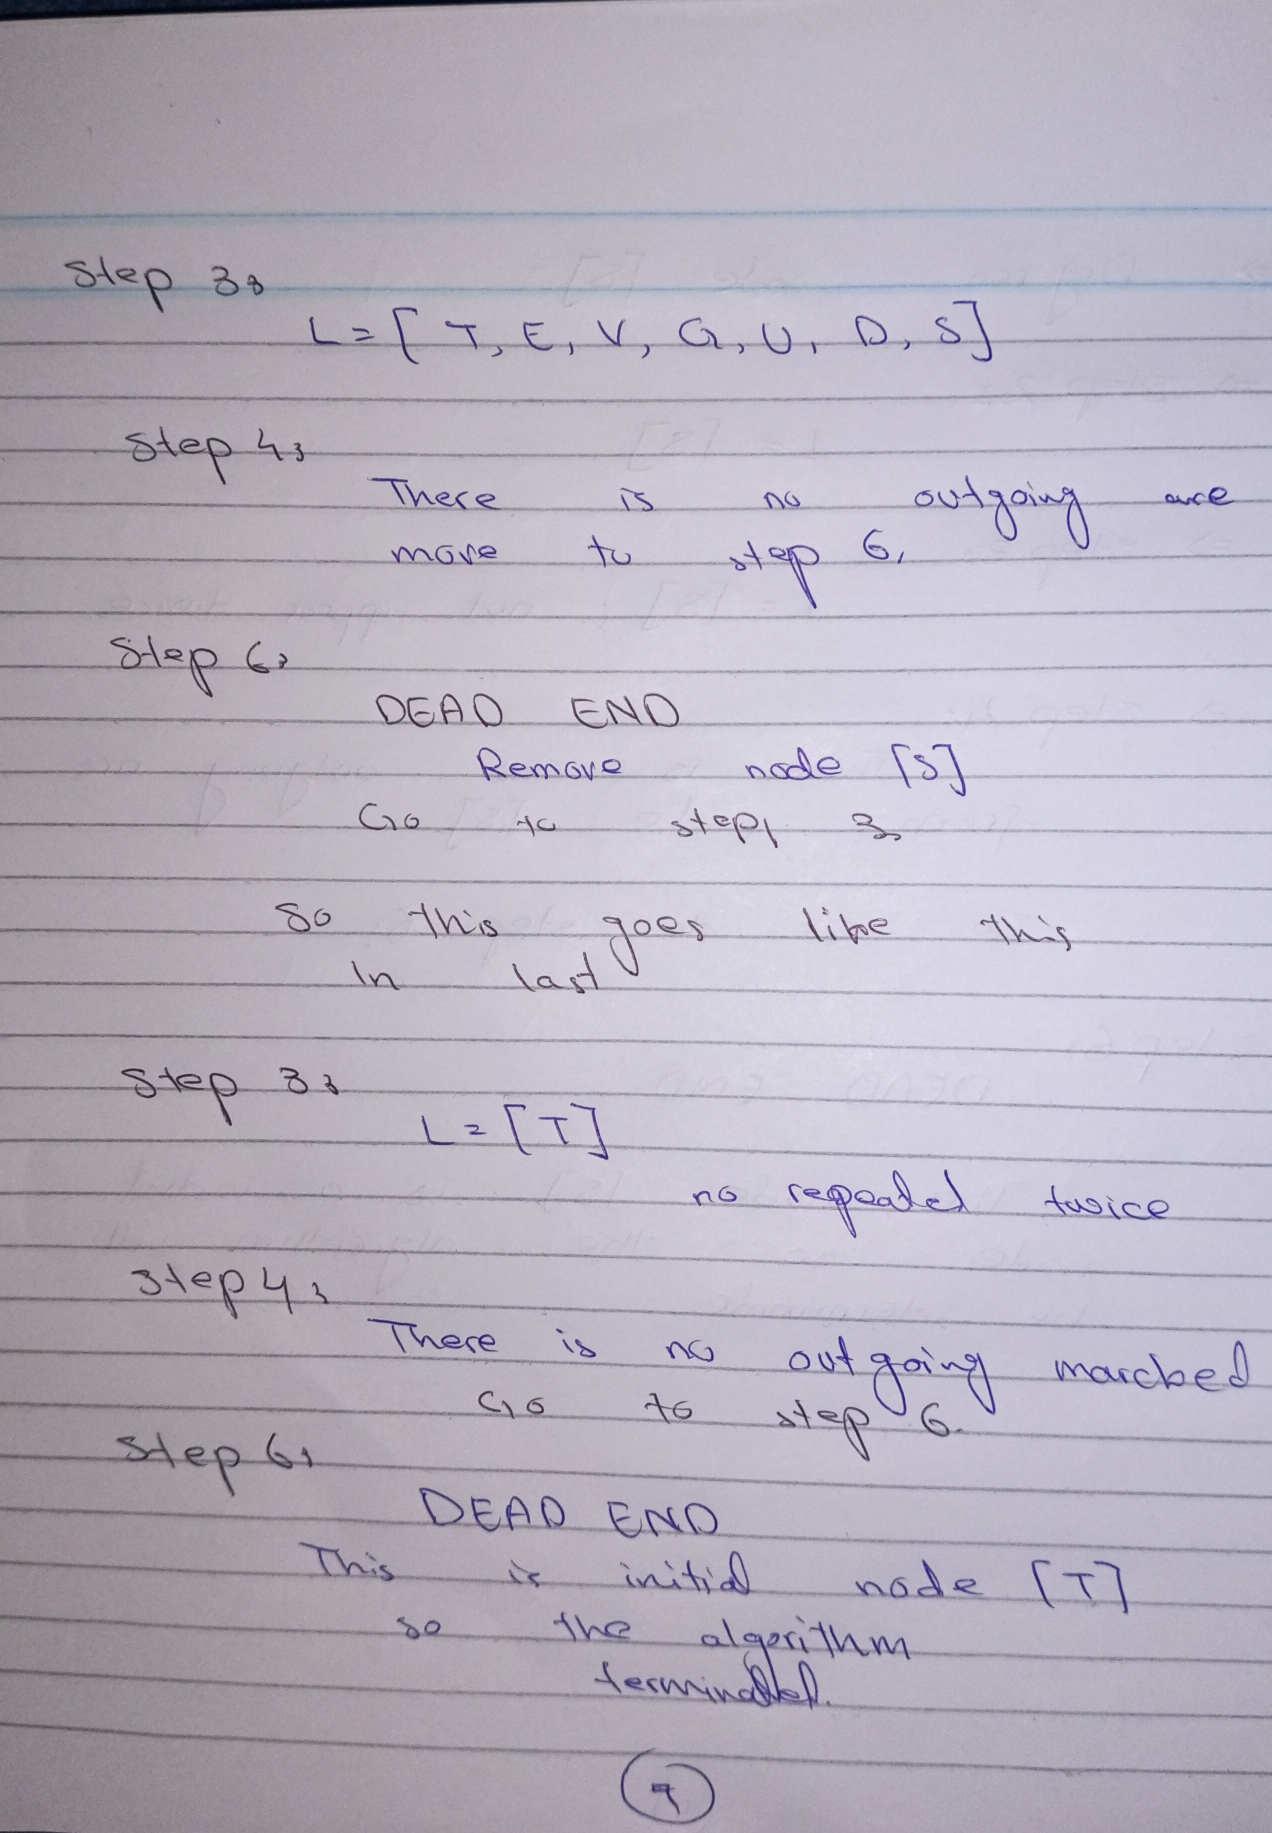 Step 3:
L = [ T, E, V, G, U, D, S]
Step 4:
There is no outgoing arc
move to step 6.
Step 6:
DEAD END
Remove node [S]
Go to step 3
So this goes like this
In last
Step 3:
L = [T]
no repeated twice
Step 4:
There is no outgoing marcked
Go to step 6.
Step 6:
DEAD END
This is initial node [T]
so the algorithm
terminated.